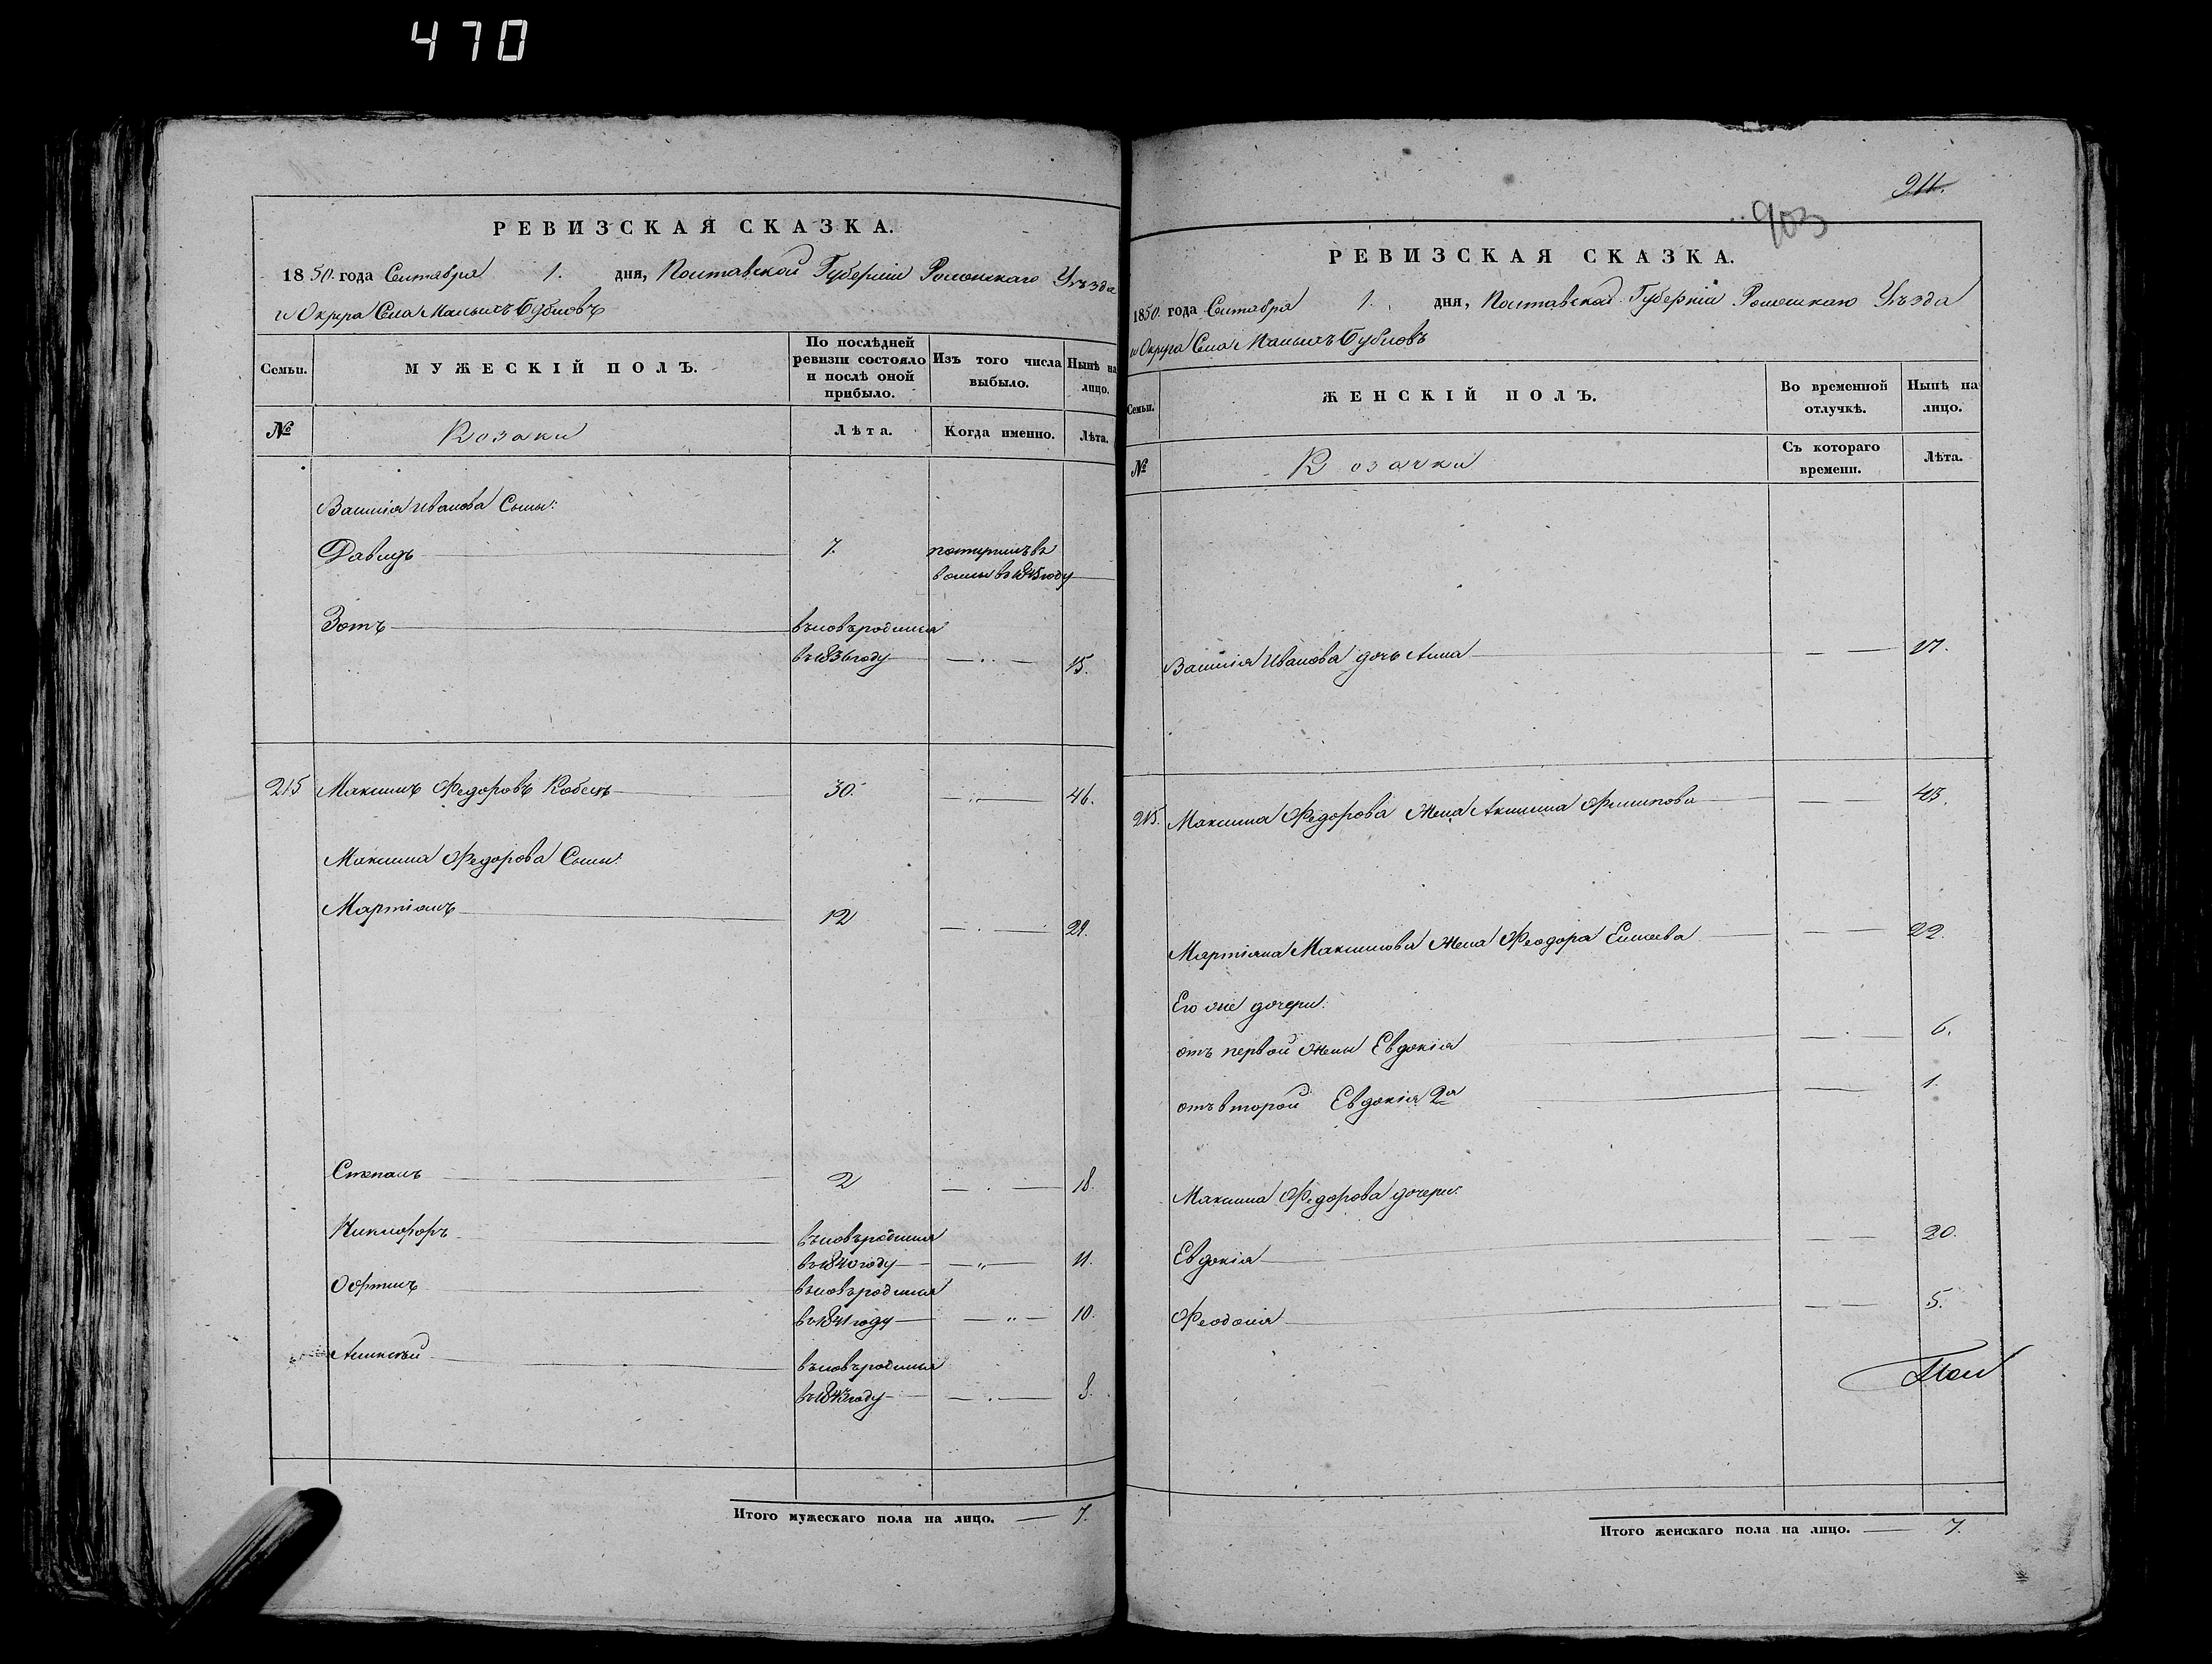 470
РЕВИЗСКАЯ СКАЗКА.
1850. года Сентября 1. дня, Полтавской Губерніи Роменскаго Уѣзда
и Округа Села Малыхъ Бубновъ
Семьи.
МУЖЕСКІЙ ПОЛЪ.
По послѣдней ревизіи состояло и послѣ оной прибыло.
Изъ того числа выбыло.
Нынѣ на лицо.
№
Козаки
Лѣта.
Когда именно.
Лѣта.
Василія Иванова Сыны:
Давидъ 7.
въ 1845 году
Зотъ вновьродился
въ 1836 году 15.
215 Максимъ Федоровъ 30. 46.
Максима Федорова Сыны:
Мартіанъ 12 29.
Степанъ 2 18.
Никифоръ вновьродился
въ 1840 году 11.
вновьродился
въ 1841 году 10.
Алексѣй вновьродился
въ 1843 году 8.
Итого мужескаго пола на лицо. 7.
911.
903
РЕВИЗСКАЯ СКАЗКА.
1850. года Сентября 1. дня, Полтавской Губерніи Роменскаго Уѣзда
и Округа Села Малыхъ Бубновъ
Семьи.
ЖЕНСКІЙ ПОЛЪ.
Во временной отлучкѣ.
Нынѣ на лицо.
№
Козачки
Съ котораго времени.
Лѣта.
Василія Иванова дочь Анна 17.
215. Максима Федорова Жена Акилина Филипова 43.
Мартіана Максимова Жена Феодора Елисеева 22.
Его же дочери:
отъ первой Жены Евдокія 6.
отъ второй Евдокія 2я 1.
Максима Федорова дочери:
Евдокія 20.
Феодосія 5.
Итого женскаго пола на лицо. 7.